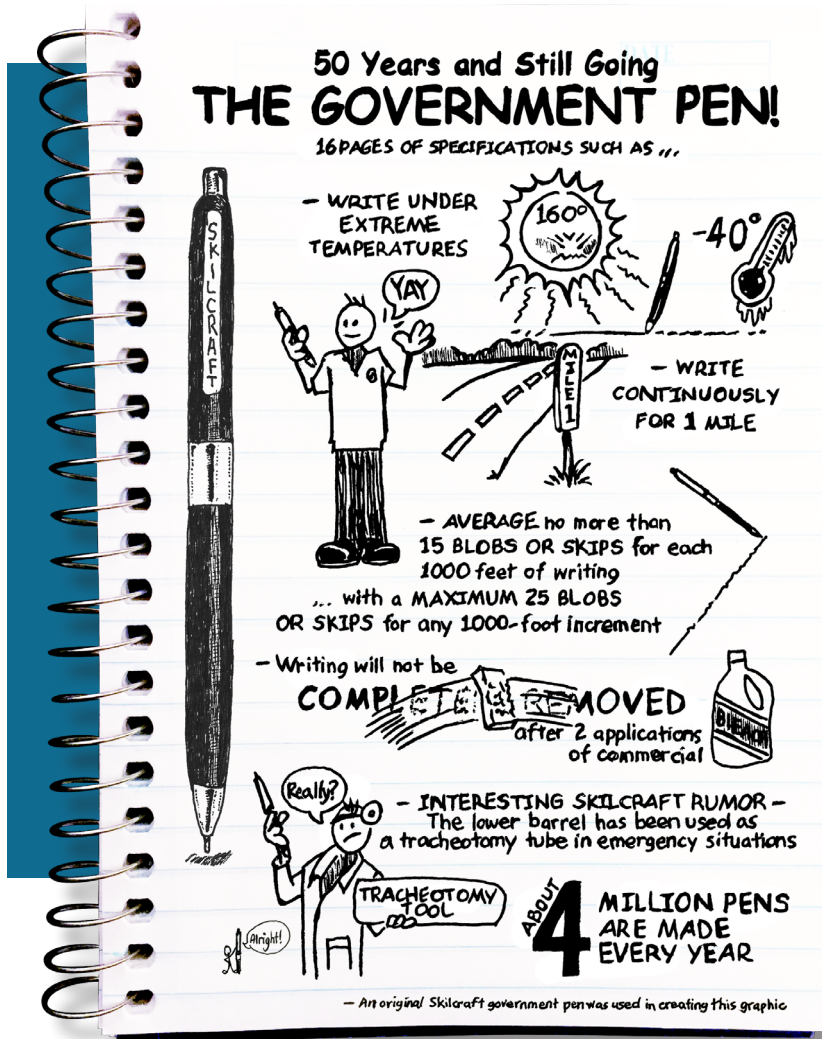 DATE
50 Years and Still Going
THE GOVERNMENT PEN!
16 PAGES OF SPECIFICATIONS SUCH AS ...
SKILCRAFT
- WRITE UNDER
EXTREME
TEMPERATURES
160°
-40°
YAY
MILE 1
- WRITE
CONTINUOUSLY
FOR 1 MILE
- AVERAGE no more than
15 BLOBS OR SKIPS for each
1000 feet of writing
... with a MAXIMUM 25 BLOBS
OR SKIPS for any 1000-foot increment
- Writing will not be
COMPLETELY REMOVED
after 2 applications
of commercial
BLEACH
Really?
- INTERESTING SKILCRAFT RUMOR -
The lower barrel has been used as
a tracheotomy tube in emergency situations
TRACHEOTOMY
TOOL
Alright!
ABOUT
4
MILLION PENS
ARE MADE
EVERY YEAR
- An original Skilcraft government pen was used in creating this graphic